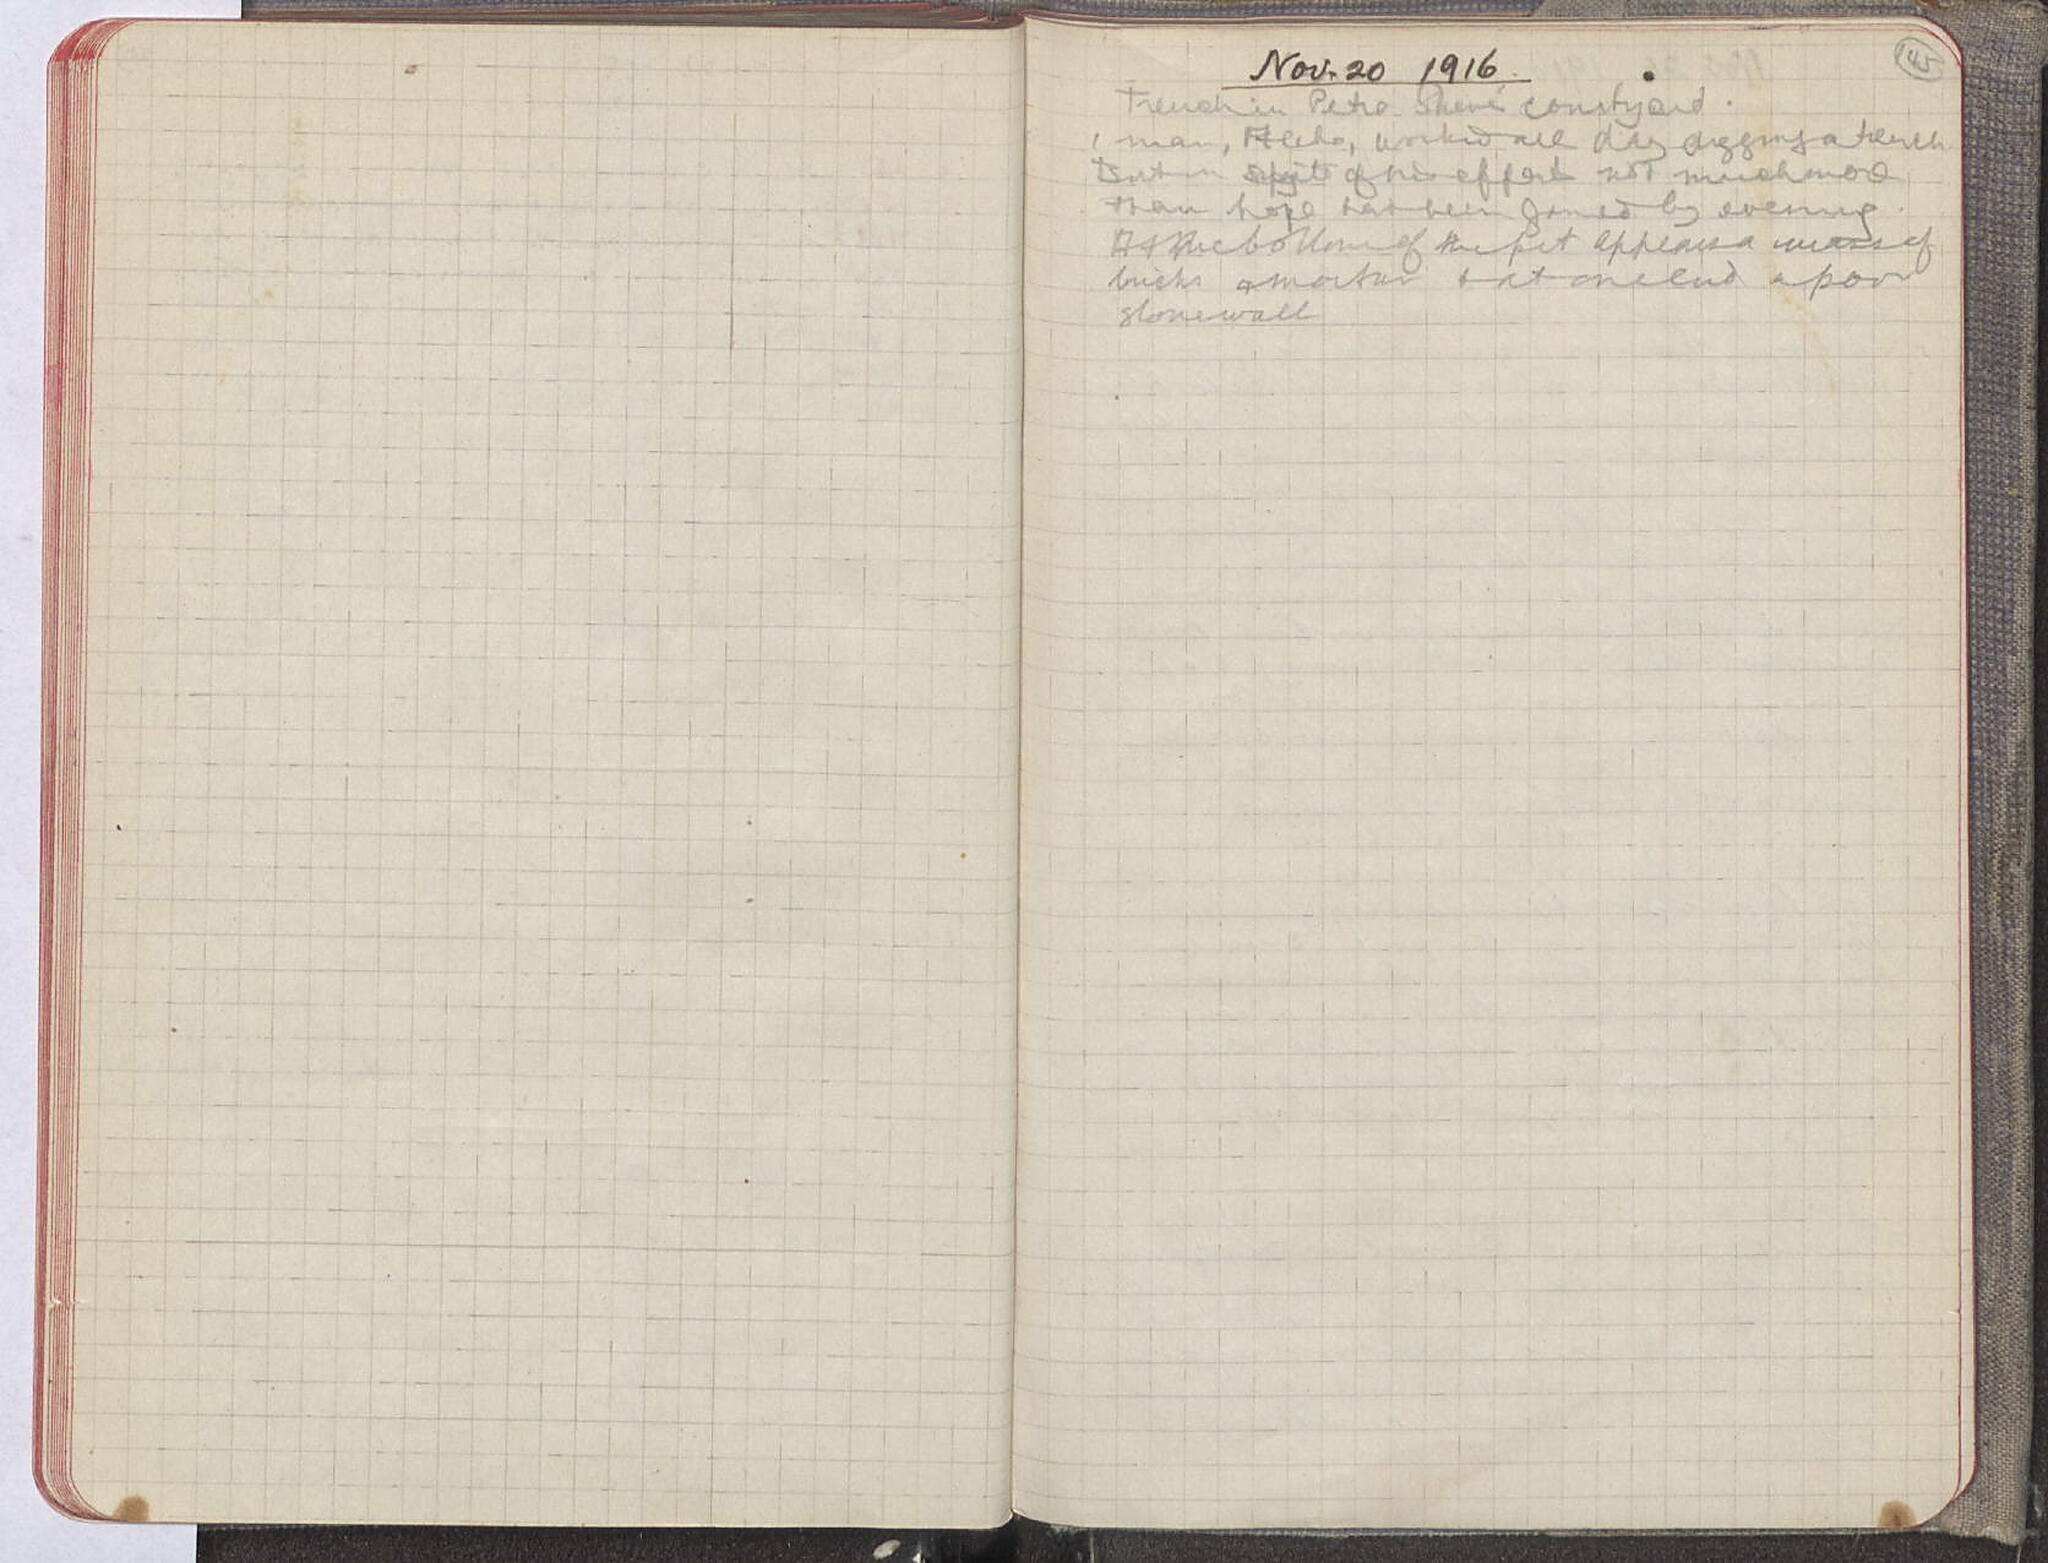 145
Nov. 20 1916
Trench in Petro courtyard.
1 man, worked all day digging a trench
But in spite of his effort not much more
than hope has been gained by evening.
At the bottom of the pit appears a mass of
bricks & mortar & at one end a poor
stone wall